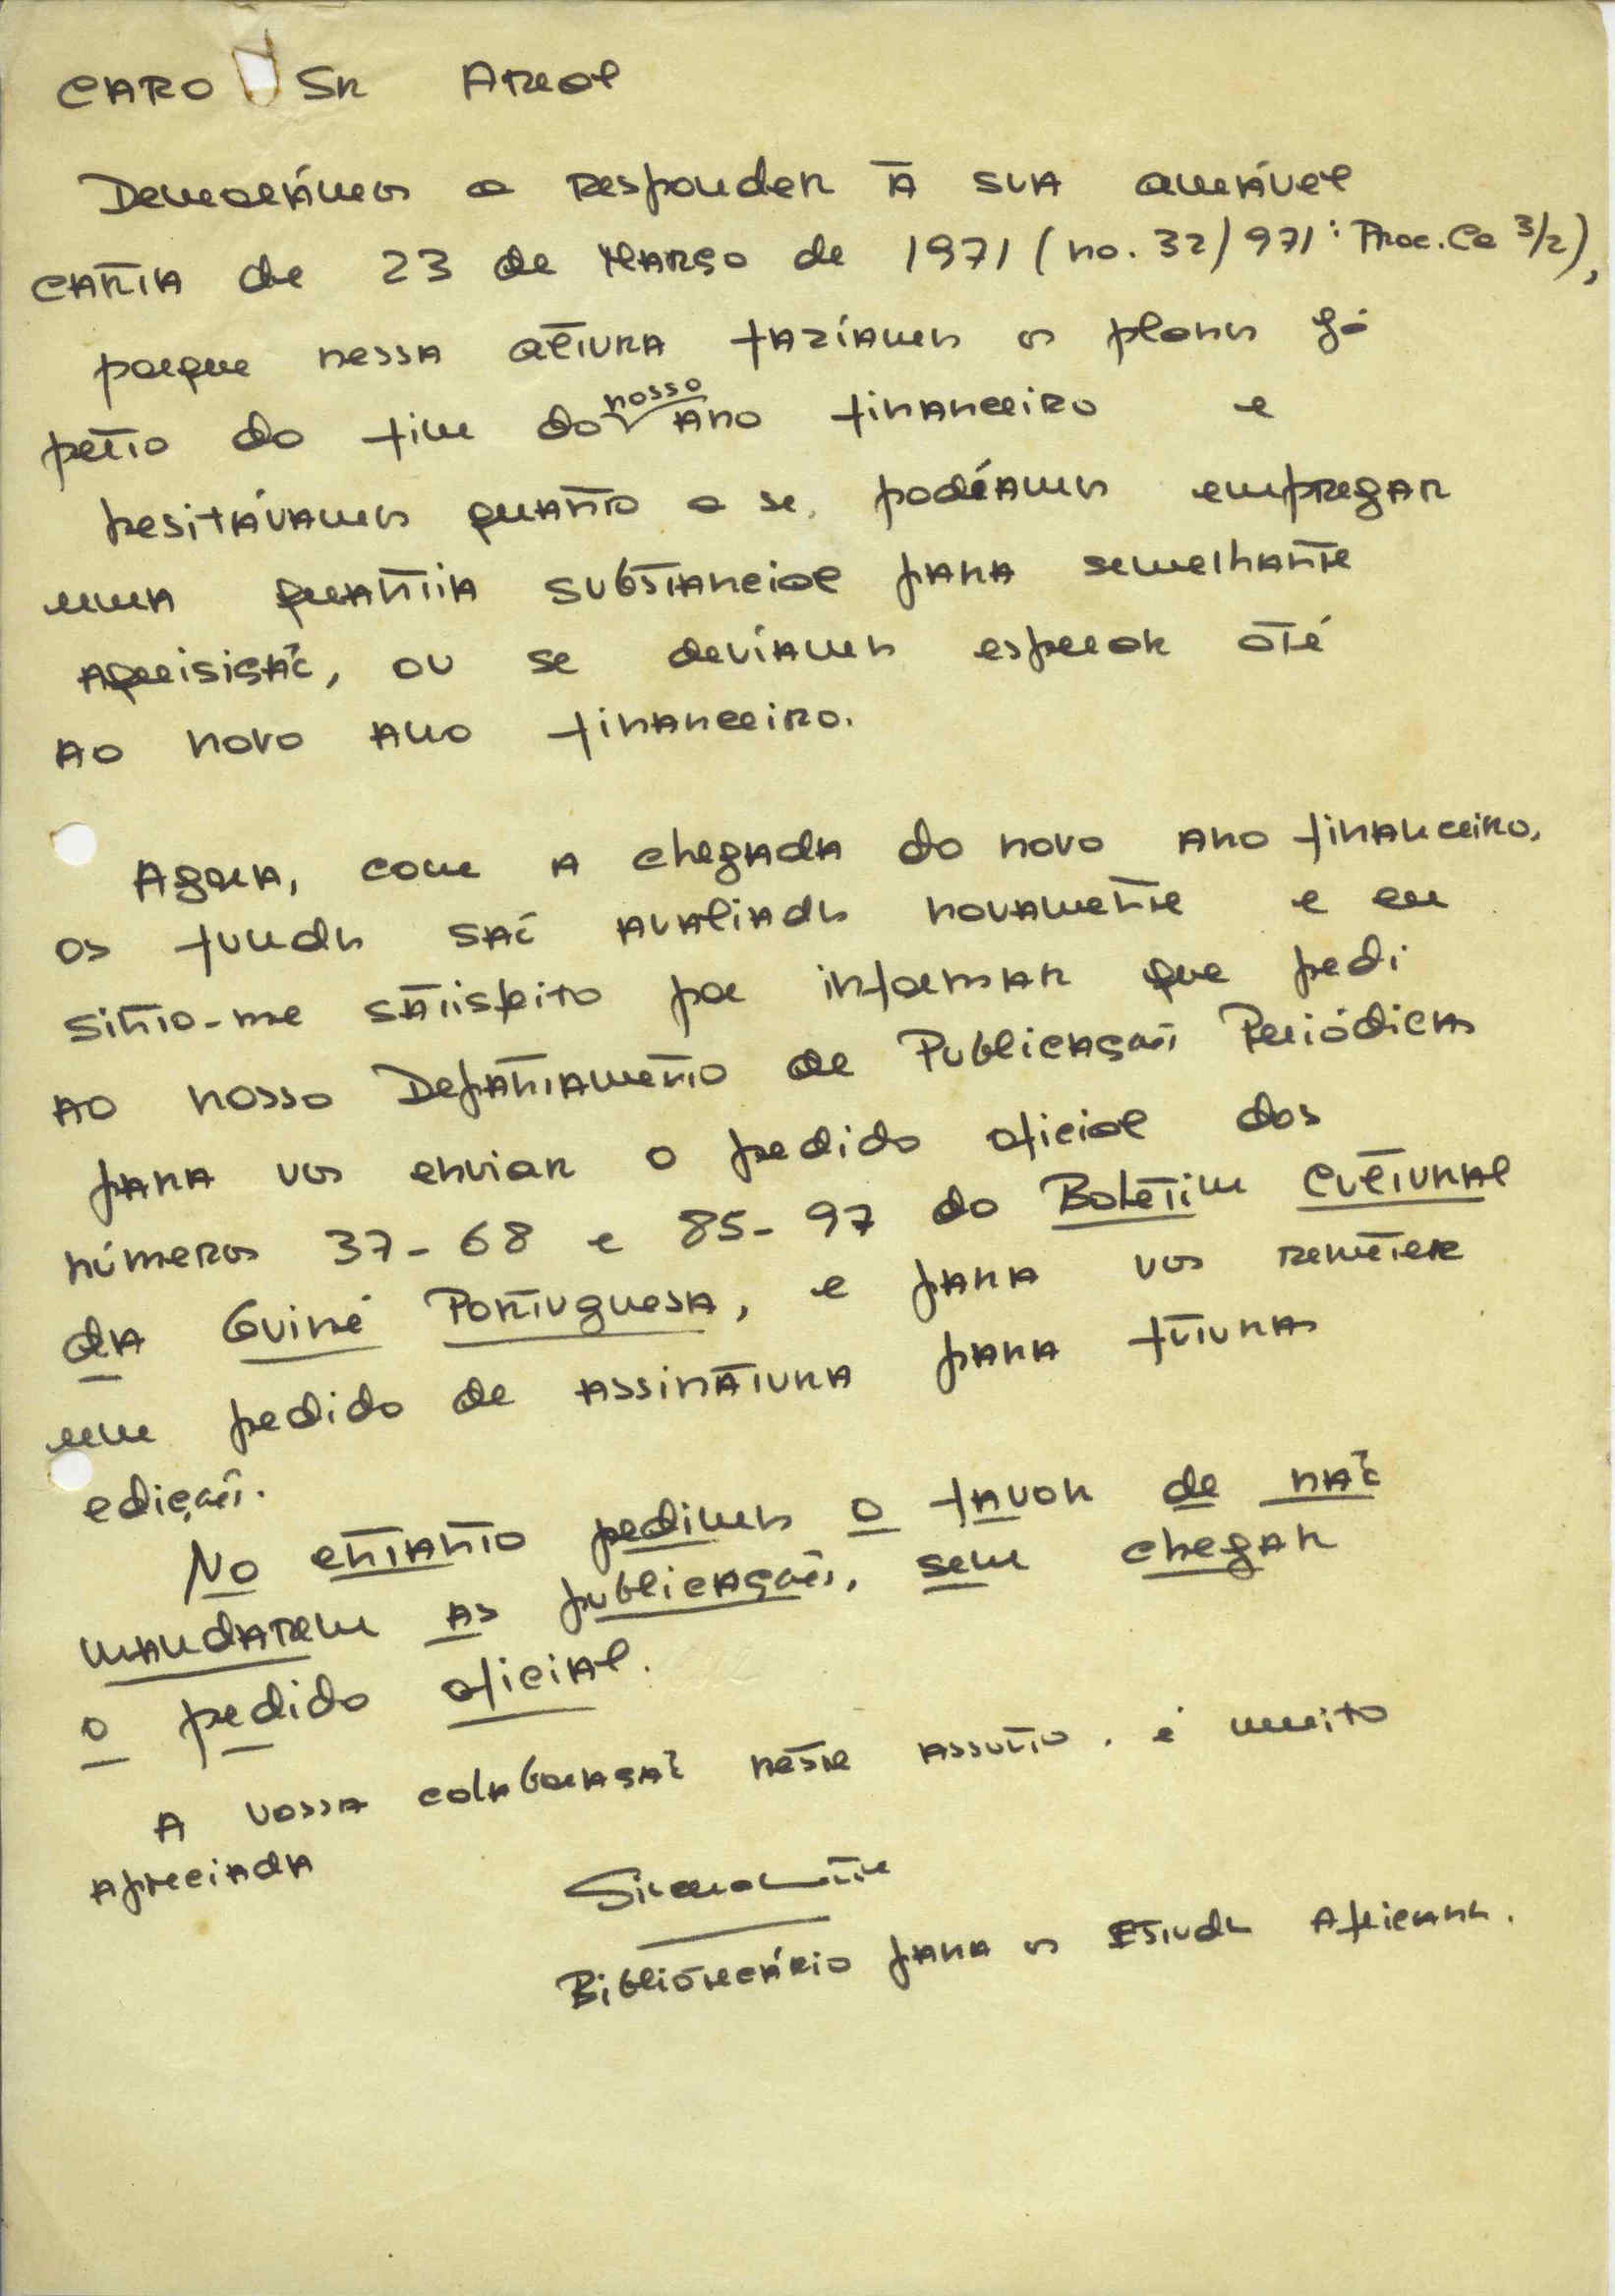 CARO Sr Areal
Demorámos a responder à sua amável
carta de 23 de Março de 1971 (no. 32/971: Proc. Ca 3/2),
porque nessa altura fazíamos os planos já
perto do fim do nosso ano financeiro e
hesitávamos quanto a se podíamos empregar
uma quantia substancial para semelhante
aquisição, ou se devíamos esperar até
ao novo ano financeiro.
Agora, com a chegada do novo ano financeiro,
os fundos são avaliados novamente e eu
sinto-me satisfeito por informar que pedi
ao nosso Departamento de Publicações Periódicas
para vos enviar o pedido oficial dos
números 37-68 e 85-97 do Boletim Cultural
da Guiné Portuguesa, e para vos remeter
um pedido de assinatura para futuras
edições.
No entanto pedimos o favor de não
mandarem as publicações, sem chegar
o pedido oficial.
A vossa colaboração neste assunto, é muito
apreciada
Sinceramente
Bibliotecário para os Estudos Africanos.